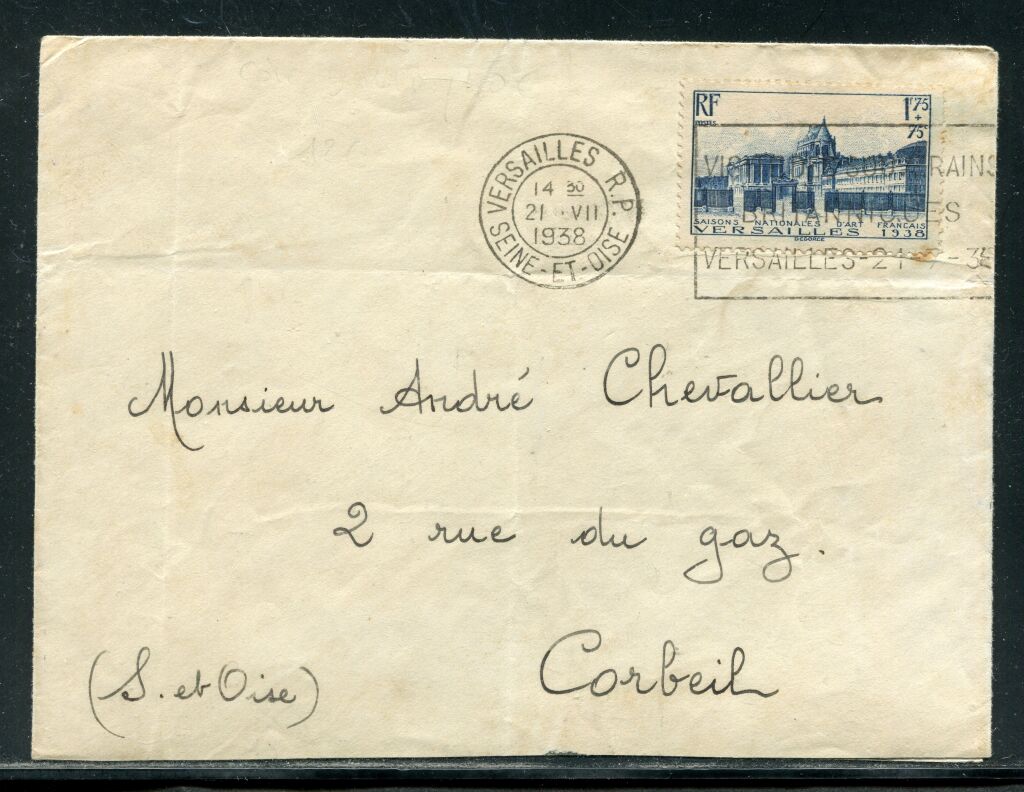 VERSAILLES R.P.
14 30
21 VII
1938
SEINE-ET-OISE
RF
POSTES
1F75
+
75c
SAISONS NATIONALES D'ART FRANÇAIS
VERSAILLES 1938
DEGORCE
BRITANNIQUES
VERSAILLES-21-7-38
Monsieur André Chevallier
2 rue du gaz.
Corbeil
(S. et Oise)